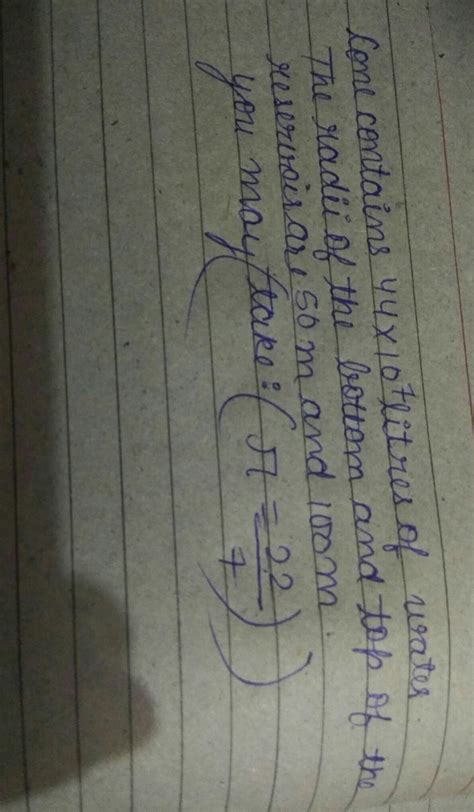 Cone contains 44x10⁷ litres of water
The radii of the bottom and top of the
reservoir are 50 m and 100m
you may take : ( π = 22/7 ) )